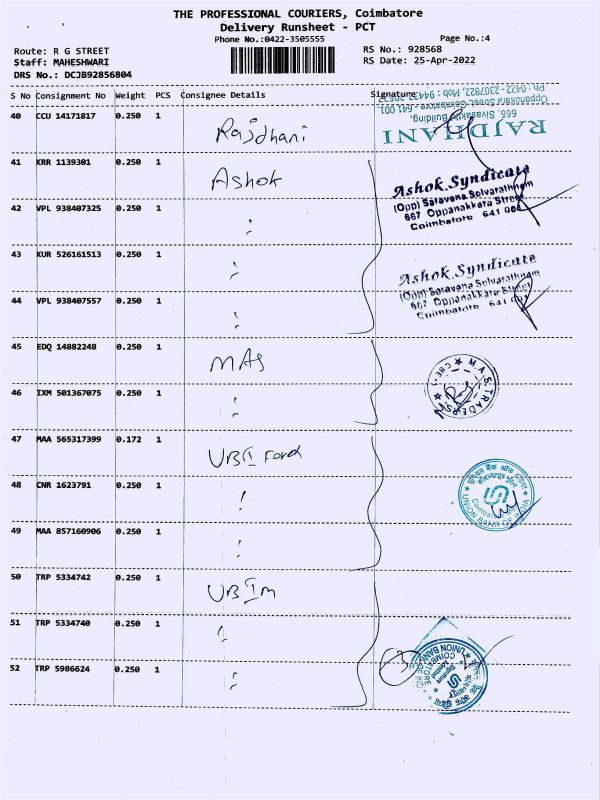 THE PROFESSIONAL COURIERS, Coimbatore
Delivery Runsheet - PCT
Phone No.:0422-3505555 Page No.:4
Route: R G STREET RS No.: 928568
Staff: MAHESHWARI RS Date: 25-Apr-2022
DRS No.: DCJB92856804
S No Consignment No Weight PCS Consignee Details Signature
Ph : 0422-2307822, Mob : 94432
Oppanakara Street, Coimbatore - 641 001.
666, Sivasakthi Building,
RAJDHANI
40 CCU 14171817 0.250 1 Rajdhani
41 KRR 1139301 0.250 1 Ashok
Ashok Syndicate
(Opp) Saravana Selvarathnam
667 Oppanakkara Street
Coimbatore 641 001
42 VPL 938407325 0.250 1 "
43 KUR 526161513 0.250 1 "
Ashok Syndicate
(Opp) Saravana Selvarathnam
667 Oppanakkara Street
Coimbatore 641 001
44 VPL 938407557 0.250 1 "
45 EDQ 14882248 0.250 1 MAS
M.A.S. TRADERS
46 IXM 501367075 0.250 1 "
47 MAA 565317399 0.172 1 UBI
48 CNR 1623791 0.250 1 "
यूनियन बैंक ऑफ इंडिया
UNION BANK OF INDIA
49 MAA 857160906 0.250 1 "
50 TRP 5334742 0.250 1 UBI m
51 TRP 5334740 0.250 1 "
52 TRP 5986624 0.250 1 "
UNION BANK
COIMBATORE